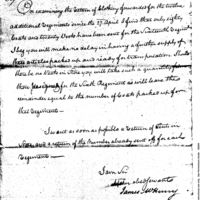 On examining the return of Clothing forwarded for the twelve
additional Regiments since the 17 april I find that only eighty
Coats and twenty Vests have been sent for the Sixteenth Regiment
I beg you will make no delay in having a further supply of
these articles packed up and ready for transportation. Should
there be no Coats in Store you will take such a quantity from
those designed for the Sixth Regiment as will leave the
remainder equal to the number of Coats packed up from
that Regiment.
I want as soon as possible a Return of Coats in
Store and a return of the number already sent off for each
Regiment
I am Sir
James McHenry